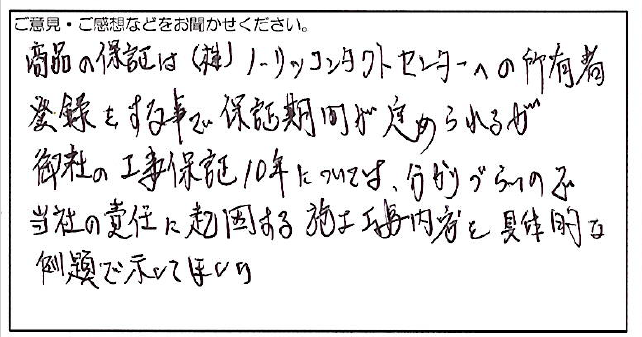 ご意見・ご感想などをお聞かせください。
商品の保証は(株)ノーリツコンタクトセンターへの所有者
登録をする事で保証期間が定められるが
御社の工事保証10年については、分かりづらいので
当社の責任に起因する施工工事内容を具体的な
例題で示してほしい